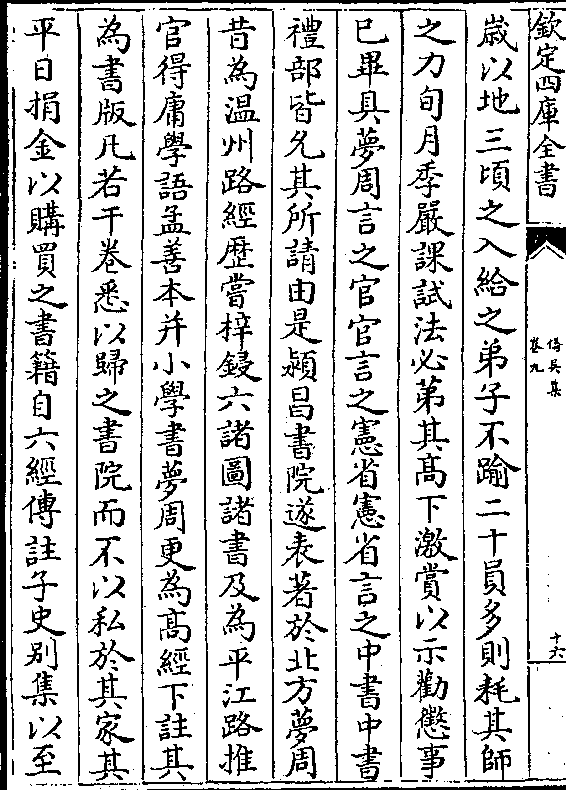 欽定四庫全書
僑吳集
卷九
十六
歲以地三頃之入給之弟子不踰二十員多則耗其師
之力旬月季嚴課試法必第其髙下激賞以示勸懲事
已畢具夢周言之官官言之憲省憲省言之中書中書
禮部皆允其所請由是潁昌書院遂表著於北方夢周
昔為温州路經歴嘗梓鋟六諸圖諸書及為平江路推
官得庸學語孟善本并小學書夢周更為髙經下註其
為書版凡若干卷悉以歸之書院而不以私於其家其
平日捐金以購買之書籍自六經傳註子史别集以至